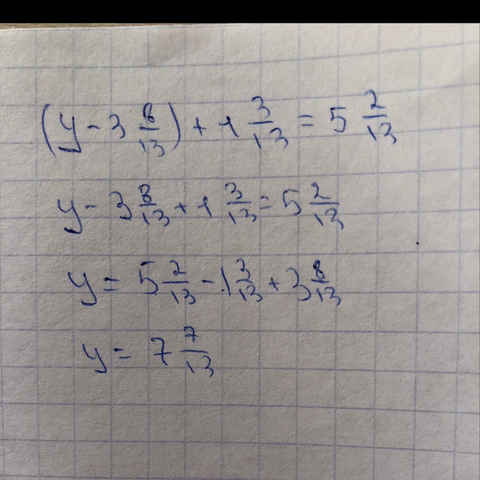 (y - 3 8/13) + 1 3/13 = 5 2/13
y - 3 8/13 + 1 3/13 = 5 2/13
y = 5 2/13 - 1 3/13 + 3 8/13
y = 7 7/13